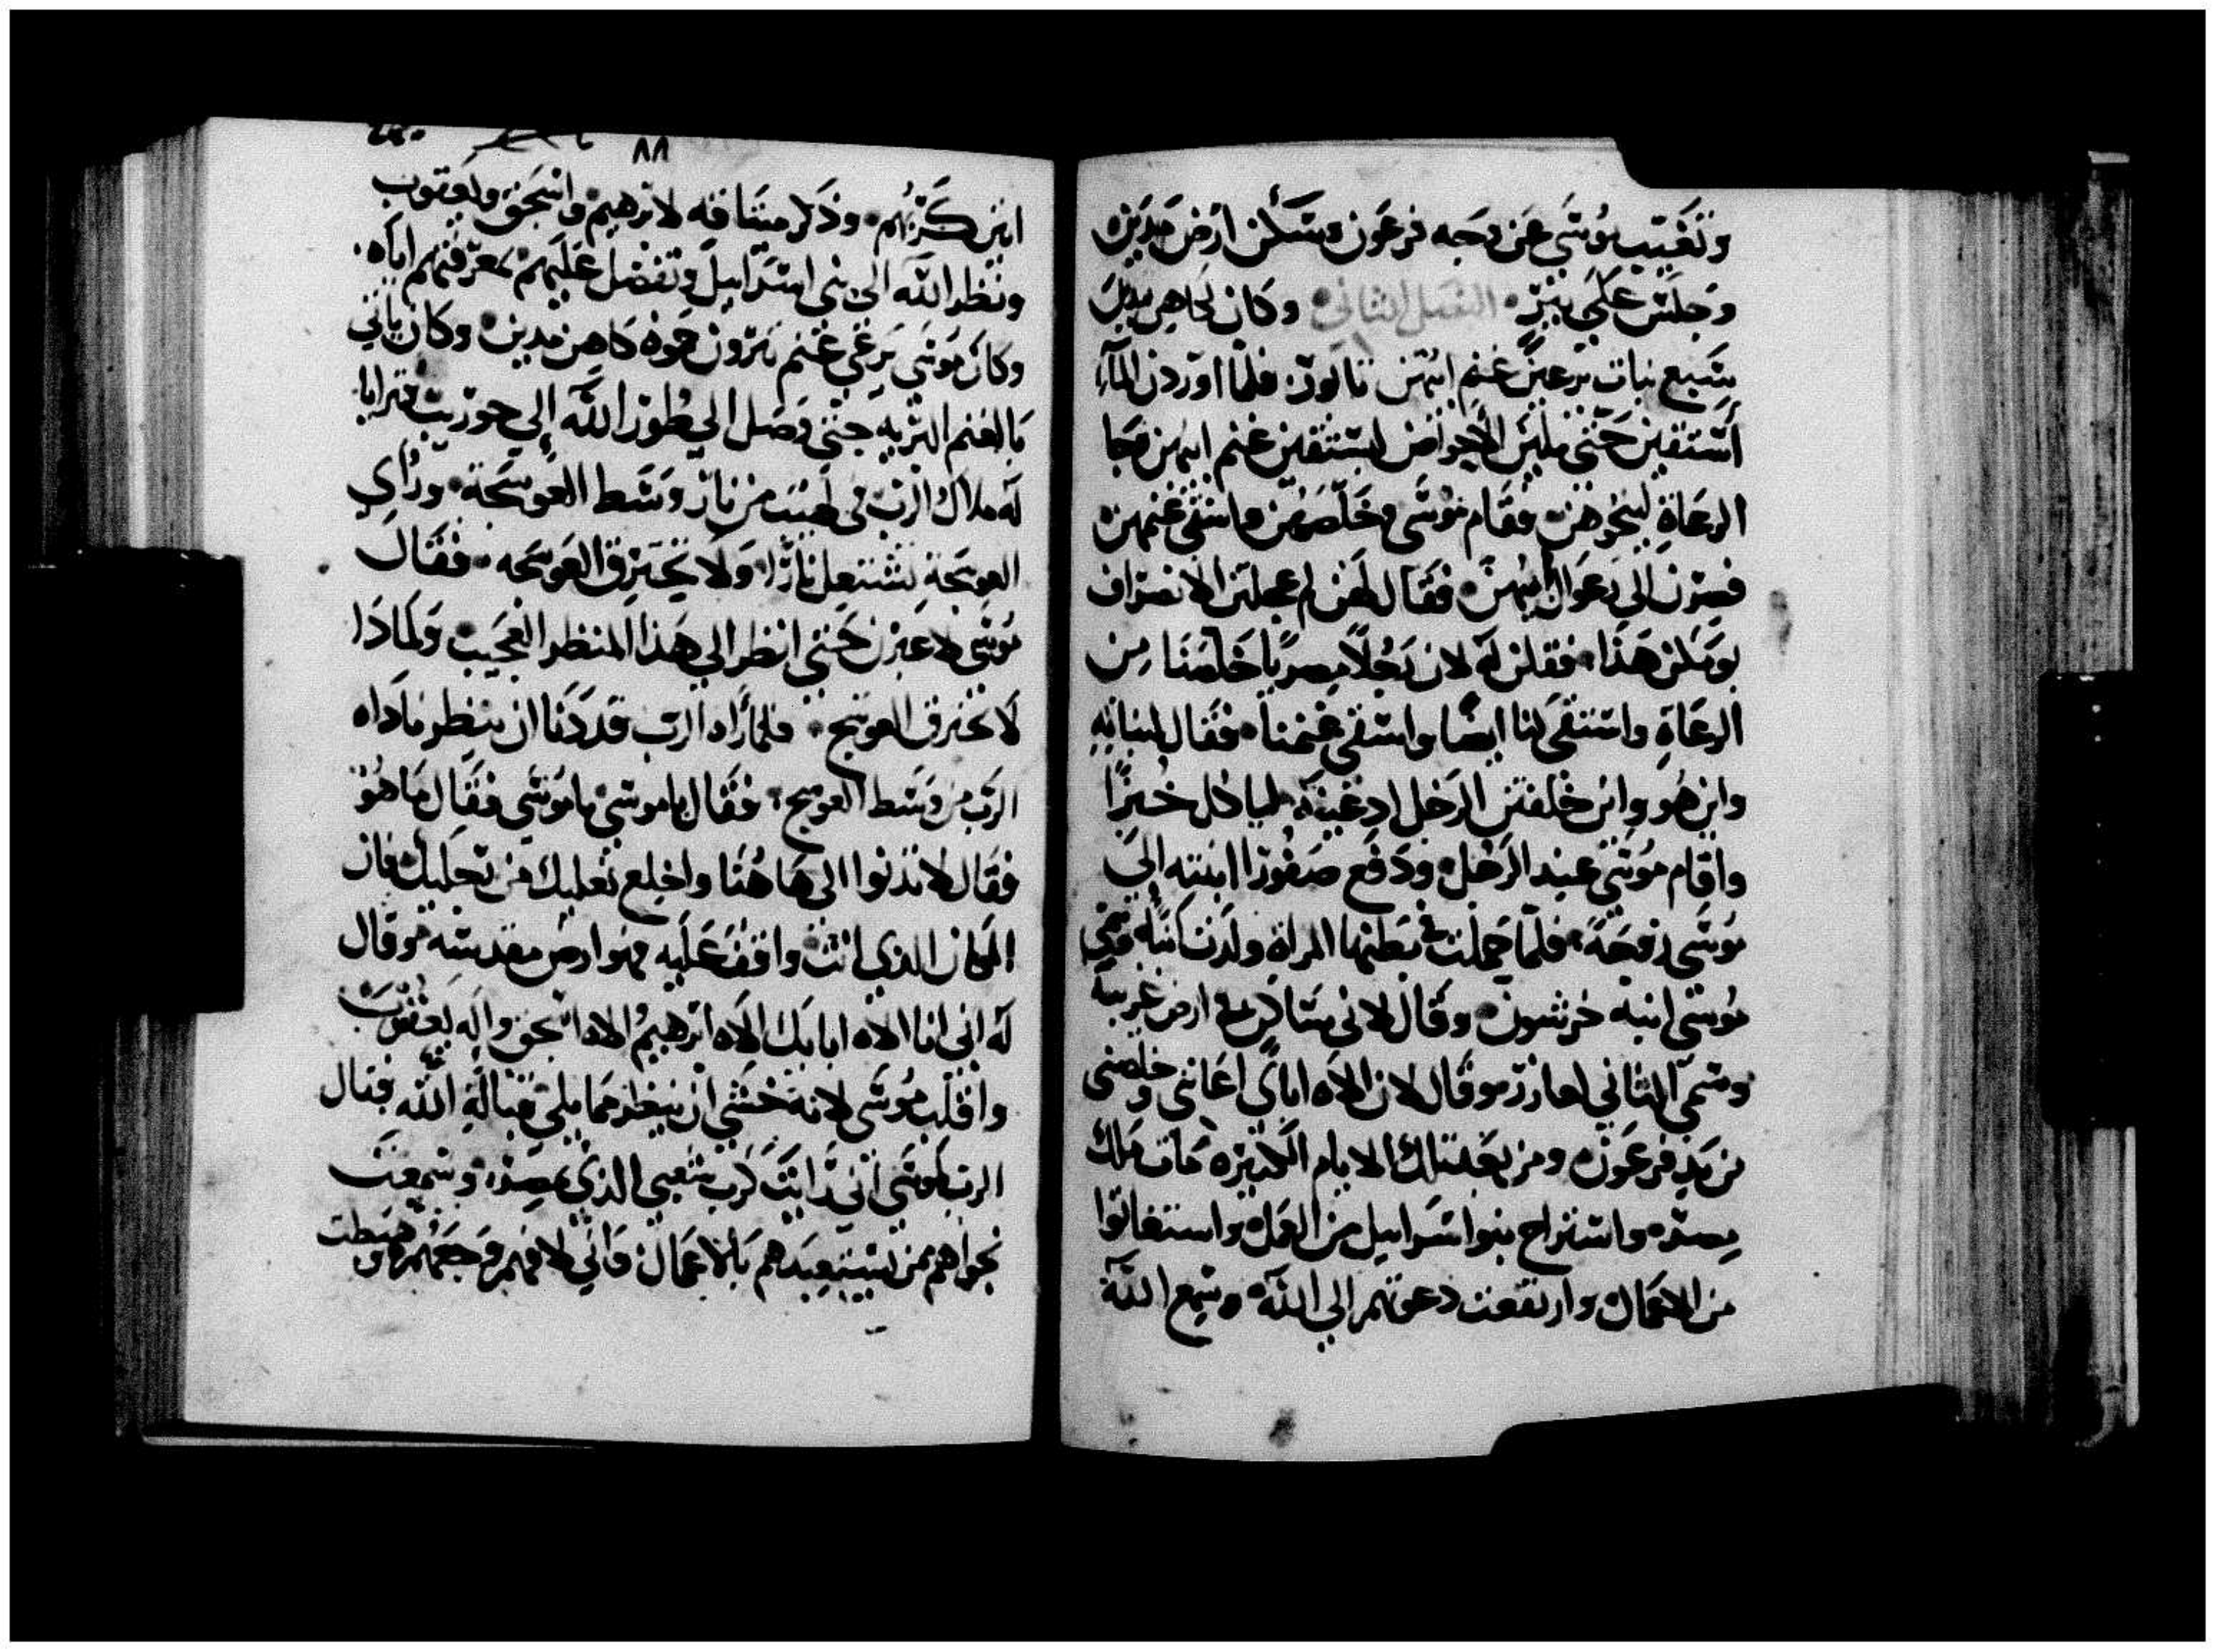 وتغيب موسى عن وجه فرعون وسكن ارض مدين
وجلس على بير الفصل الثاني وكان لكاهن مدين
سبع بنات يرعين غنم ابيهن ثابور فلما اوردن المآء
استقين حتى ملين الاحواض ليستقين غنم ابيهن فجا
الرعاة لينحوهن فقام موسى وخلصهن واستقى غنمهن
فصرن الى رعوال ابيهن فقال لهن لم عجلتن الانصراف
يومكن هذا فقلن له لان رجلاً مصرياً خلصنا من
الرعاة واستقى لنا ايضا واستقى غنمنا فقال لبناته
واين هو واين خلفتن الرجل ادعينه لياكل خبزاً
واقام موسى عند الرجل ودفع صفورا ابنته الى
موسى زوجة فلما حملت في بطنها المراة ولدت ابنا فسمى
موسى ابنه خرشون وقال لاني ساكن في ارض غريبة
وسمى الثاني لعازر وقال لان الاه اباي اعانني وخلصني
من يد فرعون ومن بعد تلك الايام الكثيره مات ملك
مصر واستراح بنوا اسراييل من العمل واستغاثوا
من الاعمال وارتفعت دعوتهم الى الله وسمع الله
٨٨
انين كربهم وذكر ميثاقه لابرهيم واسحق ويعقوب
ونظر الله الى بني اسراييل وتفضل عليهم بمعرفتهم اياه
وكان موسى يرعى غنم يثرون حموه كاهن مدين وكان ياتي
بالغنم البريه حتى وصل الى طور الله الى حوريب فترايا
له ملاك الرب في لهيب من نار وسط العوسجة وراى
العوسجة تشتعل ناراً ولا تحترق العوسجه فقال
موسى لاعبرن حتى انظر الى هذا المنظر العجيب ولماذا
لا تحترق العوسج فلما راه الرب قد دنا ان ينظر ناداه
الرب من وسط العوسج فقال يا موسى يا موسى فقال ما هو
فقال لا تدنوا الى هاهنا واخلع نعليك من رجليك فان
المكان الذي انت واقف عليه فهو ارض مقدسة وقال
له اني انا الاه ابايك الاه ابرهيم الاه اسحق واله يعقوب
واقلب موسى لانه خشي ان ينظر مما يلي قبالة الله فقال
الرب لموسى اني رايت كرب شعبي الذي بمصر وسمعت
نجواهم من يستعبدهم بالاعمال واني لافهم وجعهم وهبطت